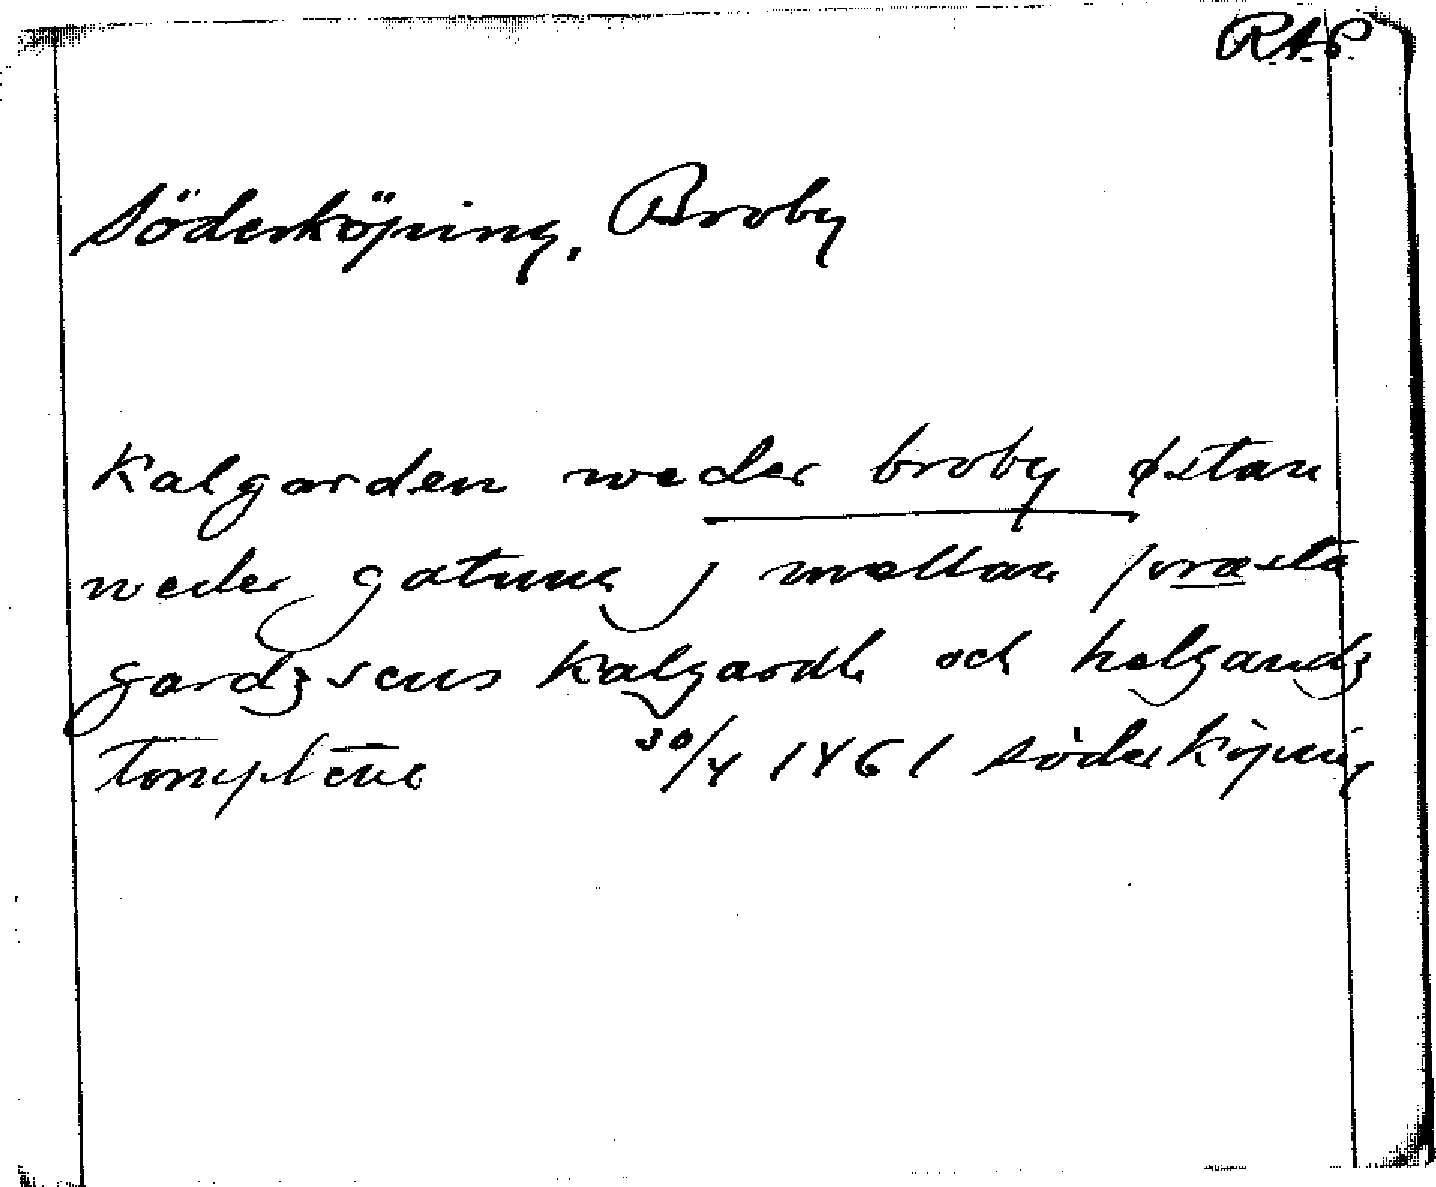 R.A.P.
Söderköping, Broby
Kalgarden weder broby østan
weder gatune j mellan præsta
gardzscens kalgardh och helgandz
tompt ene 30/4 1461 Söderköping